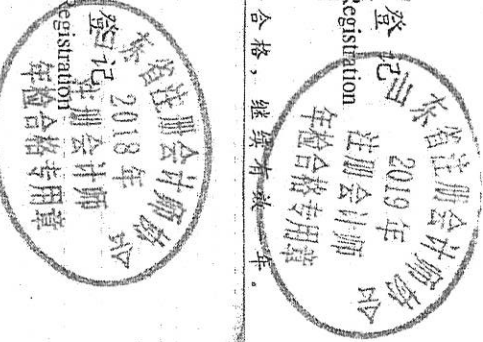 登记
Registration
合格，继续有效一年。
山东省注册会计师协会
2019年
注册会计师
年检合格专用章
登记
egistration
东省注册会计师协会
2018年
注册会计师
年检合格专用章